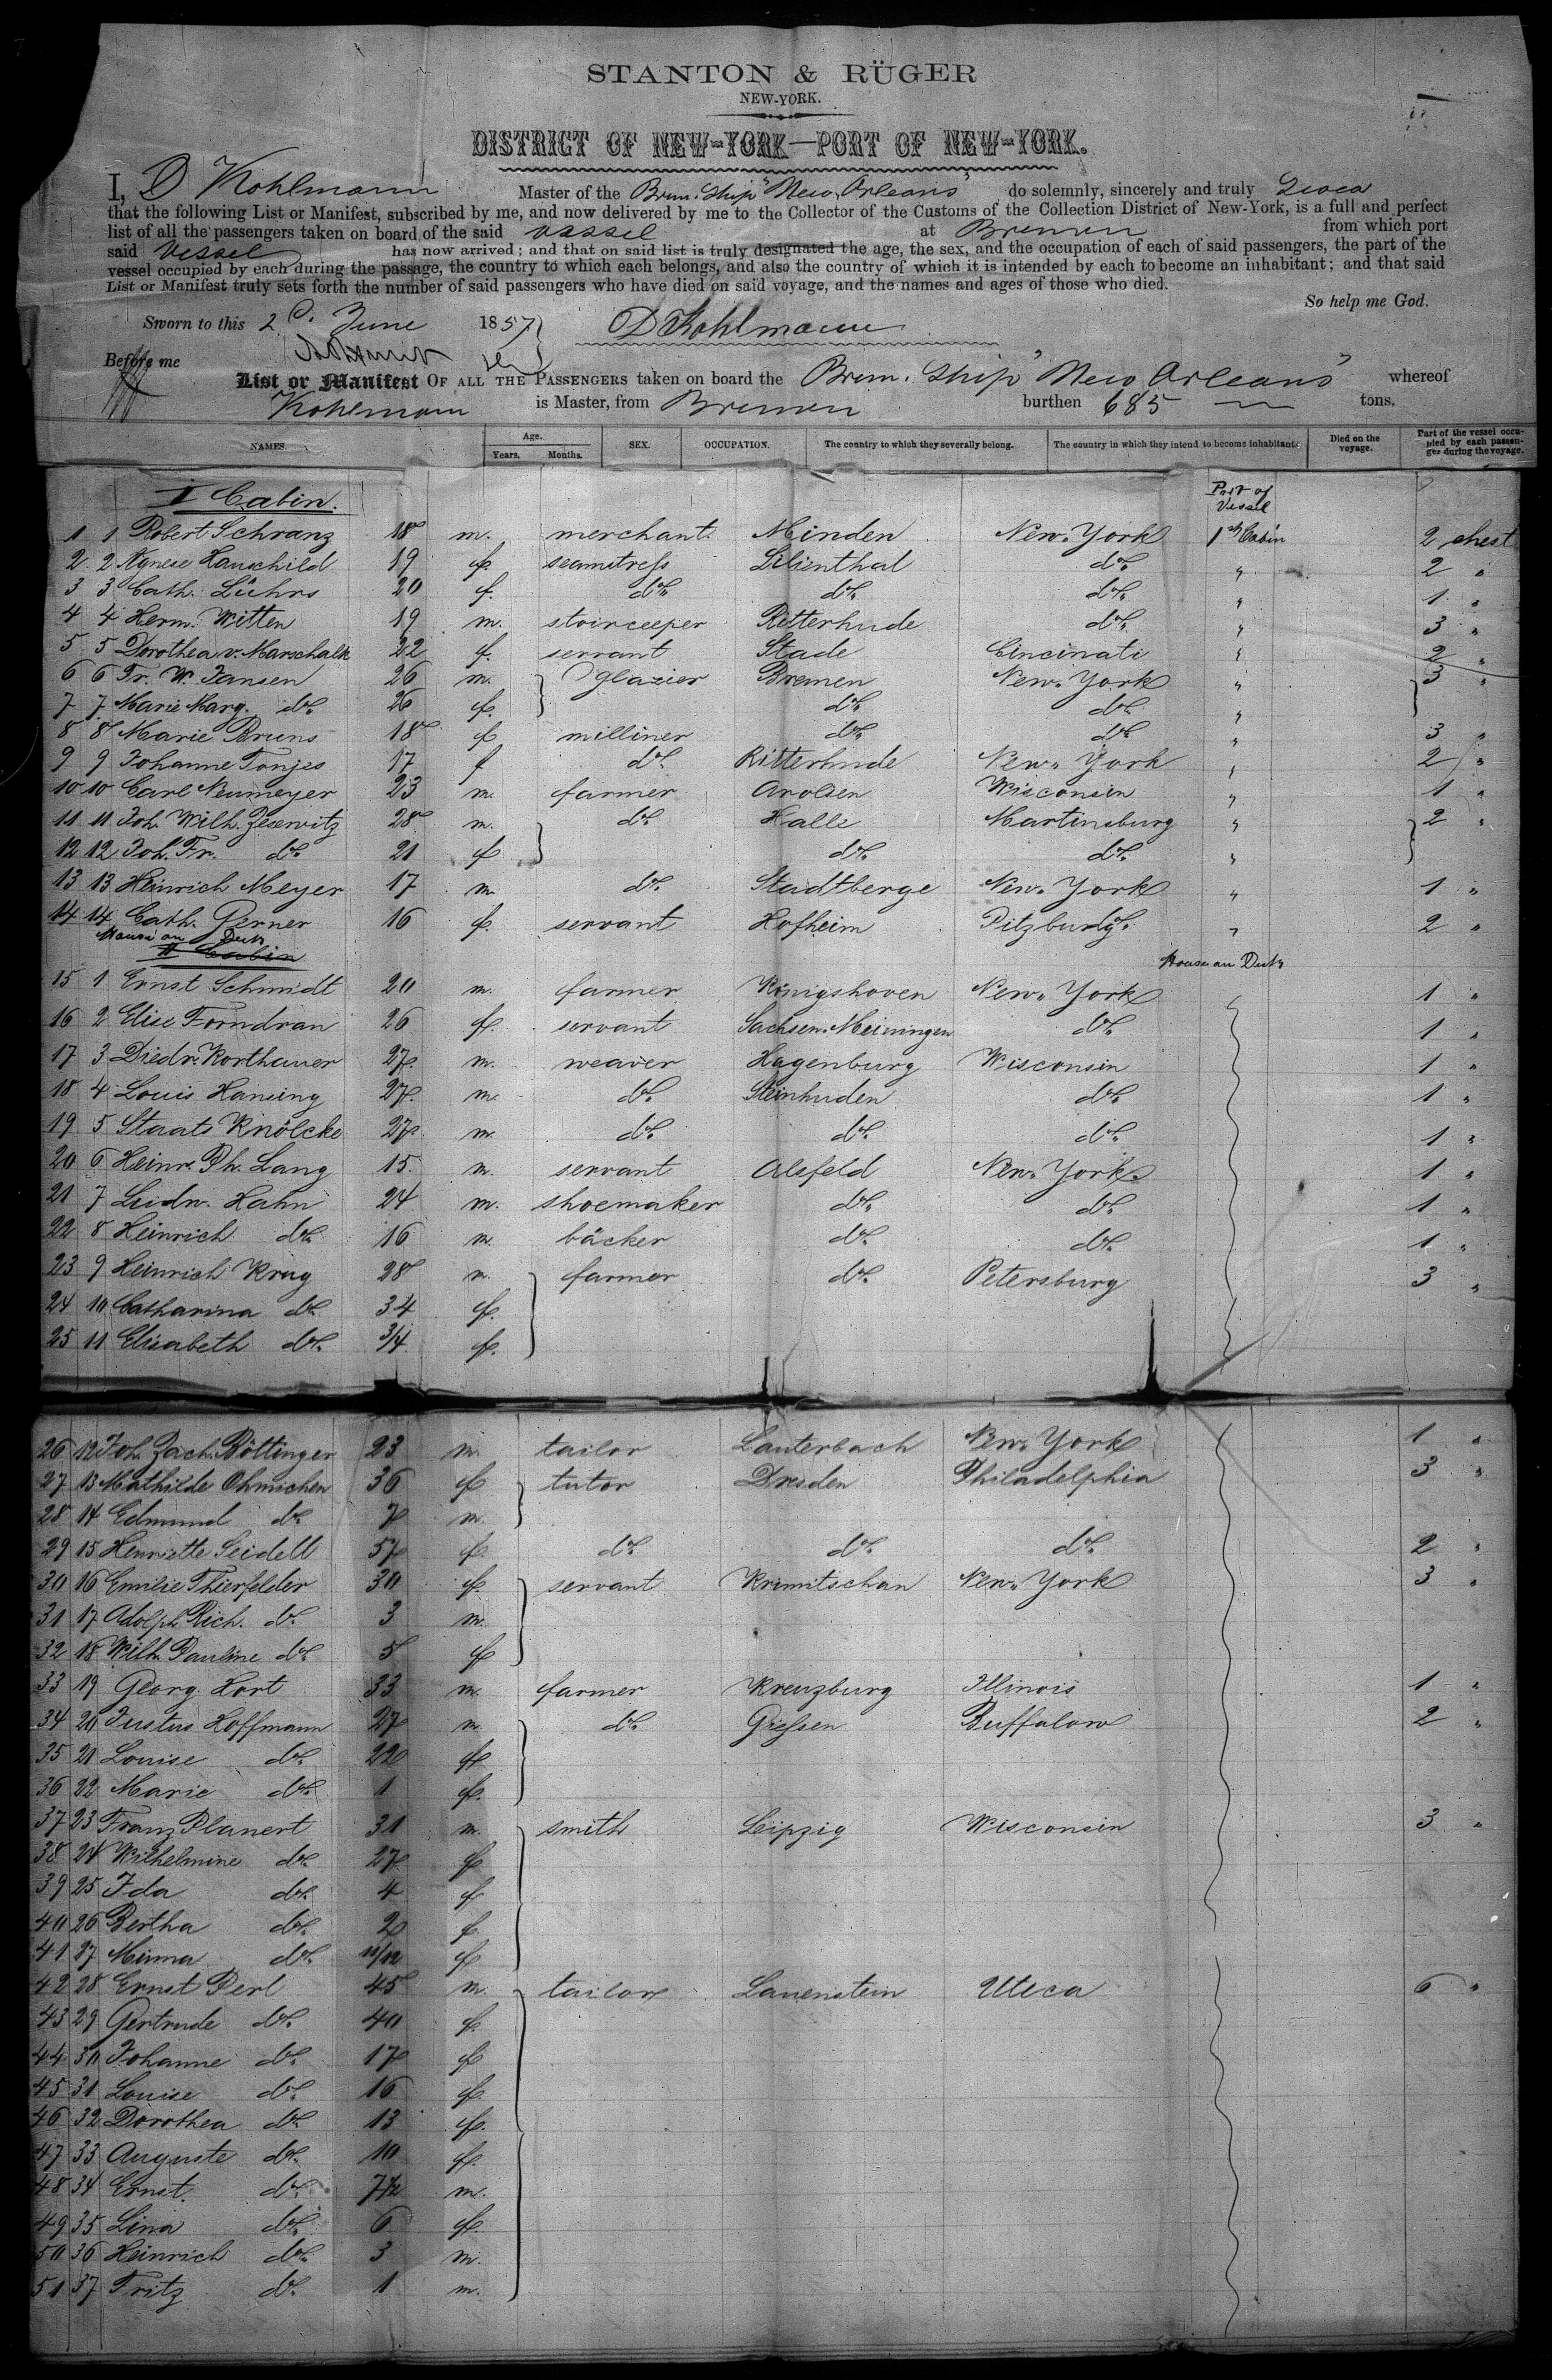 STANTON & RÜGER
NEW-YORK.
DISTRICT OF NEW-YORK—PORT OF NEW-YORK.
I, D Kohlmann Master of the Brem. Ship "New Orleans" do solemnly, sincerely and truly Swear
that the following List or Manifest, subscribed by me, and now delivered by me to the Collector of the Customs of the Collection District of New-York, is a full and perfect
list of all the passengers taken on board of the said vessel at Bremen from which port
said vessel has now arrived; and that on said list is truly designated the age, the sex, and the occupation of each of said passengers, the part of the
vessel occupied by each during the passage, the country to which each belongs, and also the country of which it is intended by each to become an inhabitant; and that said
List or Manifest truly sets forth the number of said passengers who have died on said voyage, and the names and ages of those who died.
So help me God.
Sworn to this 2d. June 1857 D Kohlmann
Before me
List or Manifest OF ALL THE PASSENGERS taken on board the Brem. Ship "New Orleans" whereof
Kohlmann is Master, from Bremen burthen 685 tons.
NAMES. Age. Years. Months. SEX. OCCUPATION. The country to which they severally belong. The country in which they intend to become inhabitants. Died on the voyage. Part of the vessel occupied by each passenger during the voyage.
I Cabin. Part of Vessel
1 1 Robert Schranz 18 m. merchant. Minden New-York 1st Cabin 2 chest
2 2 Agnese Hauschild 19 f. seamstress Lilienthal do. " 2 "
3 3 Cath. Lührs 20 f. do. do. do. " 1 "
4 4 Herm. Witten 19 m. stoirceeper Ritterhude do. " 3 "
5 5 Dorothea v. Marschalk 22 f. servant Stade Cincinati " 2 "
6 6 Fr. W. Jansen 26 m. glazier Bremen New-York " 3 "
7 7 Marie Marg. do. 26 f. do. do. "
8 8 Marie Bruns 18 f. milliner do. do. " 3 "
9 9 Johanne Tonjes 17 f do. Ritterhude New-York " 2 "
10 10 Carl Neumeyer 23 m. farmer Arolsen Wisconsin " 1 "
11 11 Joh. Wilh. Zeservitz 28 m. do. Halle Martinsburg " 2 "
12 12 Joh. Fr. do. 21 f do. do. "
13 13 Heinrich Meyer 17 m do. Stadtberge New-York " 1 "
14 14 Cath. Gerner 16 f. servant Hofheim Pitzburg " 2 "
House on Deck
II Cabin House on Deck
15 1 Ernst Schmidt 20 m. farmer Königshoven New-York 1 "
16 2 Elise Forndran 26 f. servant Sachsen-Meiningen do. 1 "
17 3 Diedr. Korthauer 27. m. weaver Hagenburg Wisconsin 1 "
18 4 Louis Hansing 27. m. do. Steinhuden do. 1 "
19 5 Staats Knölcke 27 m. do. do. do. 1 "
20 6 Heinr. Ph. Lang 15. m. servant Alsfeld New-York 1 "
21 7 Ludw. Hahn 24 m. shoemaker do. do. 1 "
22 8 Heinrich do. 16 m. bäcker do. do. 1 "
23 9 Heinrich Krug 28 m. farmer do. Petersburg 3 "
24 10 Catharina do. 34 f.
25 11 Elisabeth do. 3/4 f.
26 12 Joh. Zach. Böttinger 23 m. tailor Lauterbach New-York 1 "
27 13 Mathilde Ohmichen 36 f tutor Dresden Philadelphia 3 "
28 14 Edmund do. 7 m.
29 15 Henriette Seidell 57 f. do. do. do. 2 "
30 16 Emilie Thierfelder 30 f. servant Krimitschau New-York 3 "
31 17 Adolph Rich. do. 3 m.
32 18 Wilh. Pauline do. 5 f
33 19 Georg Hort 33 m. farmer Kreuzburg Illinois 1 "
34 20 Justus Hoffmann 27 m. do. Giessen Buffalow 2 "
35 21 Louise do. 22 f
36 22 Marie do. 1 f.
37 23 Franz Planert 31 m. smith Leipzig Wisconsin 3 "
38 24 Wilhelmine do. 27 f
39 25 Ida do. 4 f
40 26 Bertha do. 2 f.
41 27 Minna do. 11/12 f
42 28 Ernst Perl 45 m. tailor Lauenstein Uteca 6 "
43 29 Gertrude do. 40 f.
44 30 Johanne do. 17 f
45 31 Louise do. 16 f.
46 32 Dorothea do. 13 f.
47 33 Auguste do. 10 f.
48 34 Ernst. do. 7 1/2 m.
49 35 Lina do. 6 f.
50 36 Heinrich do. 3 m.
51 37 Fritz do. 1 m.